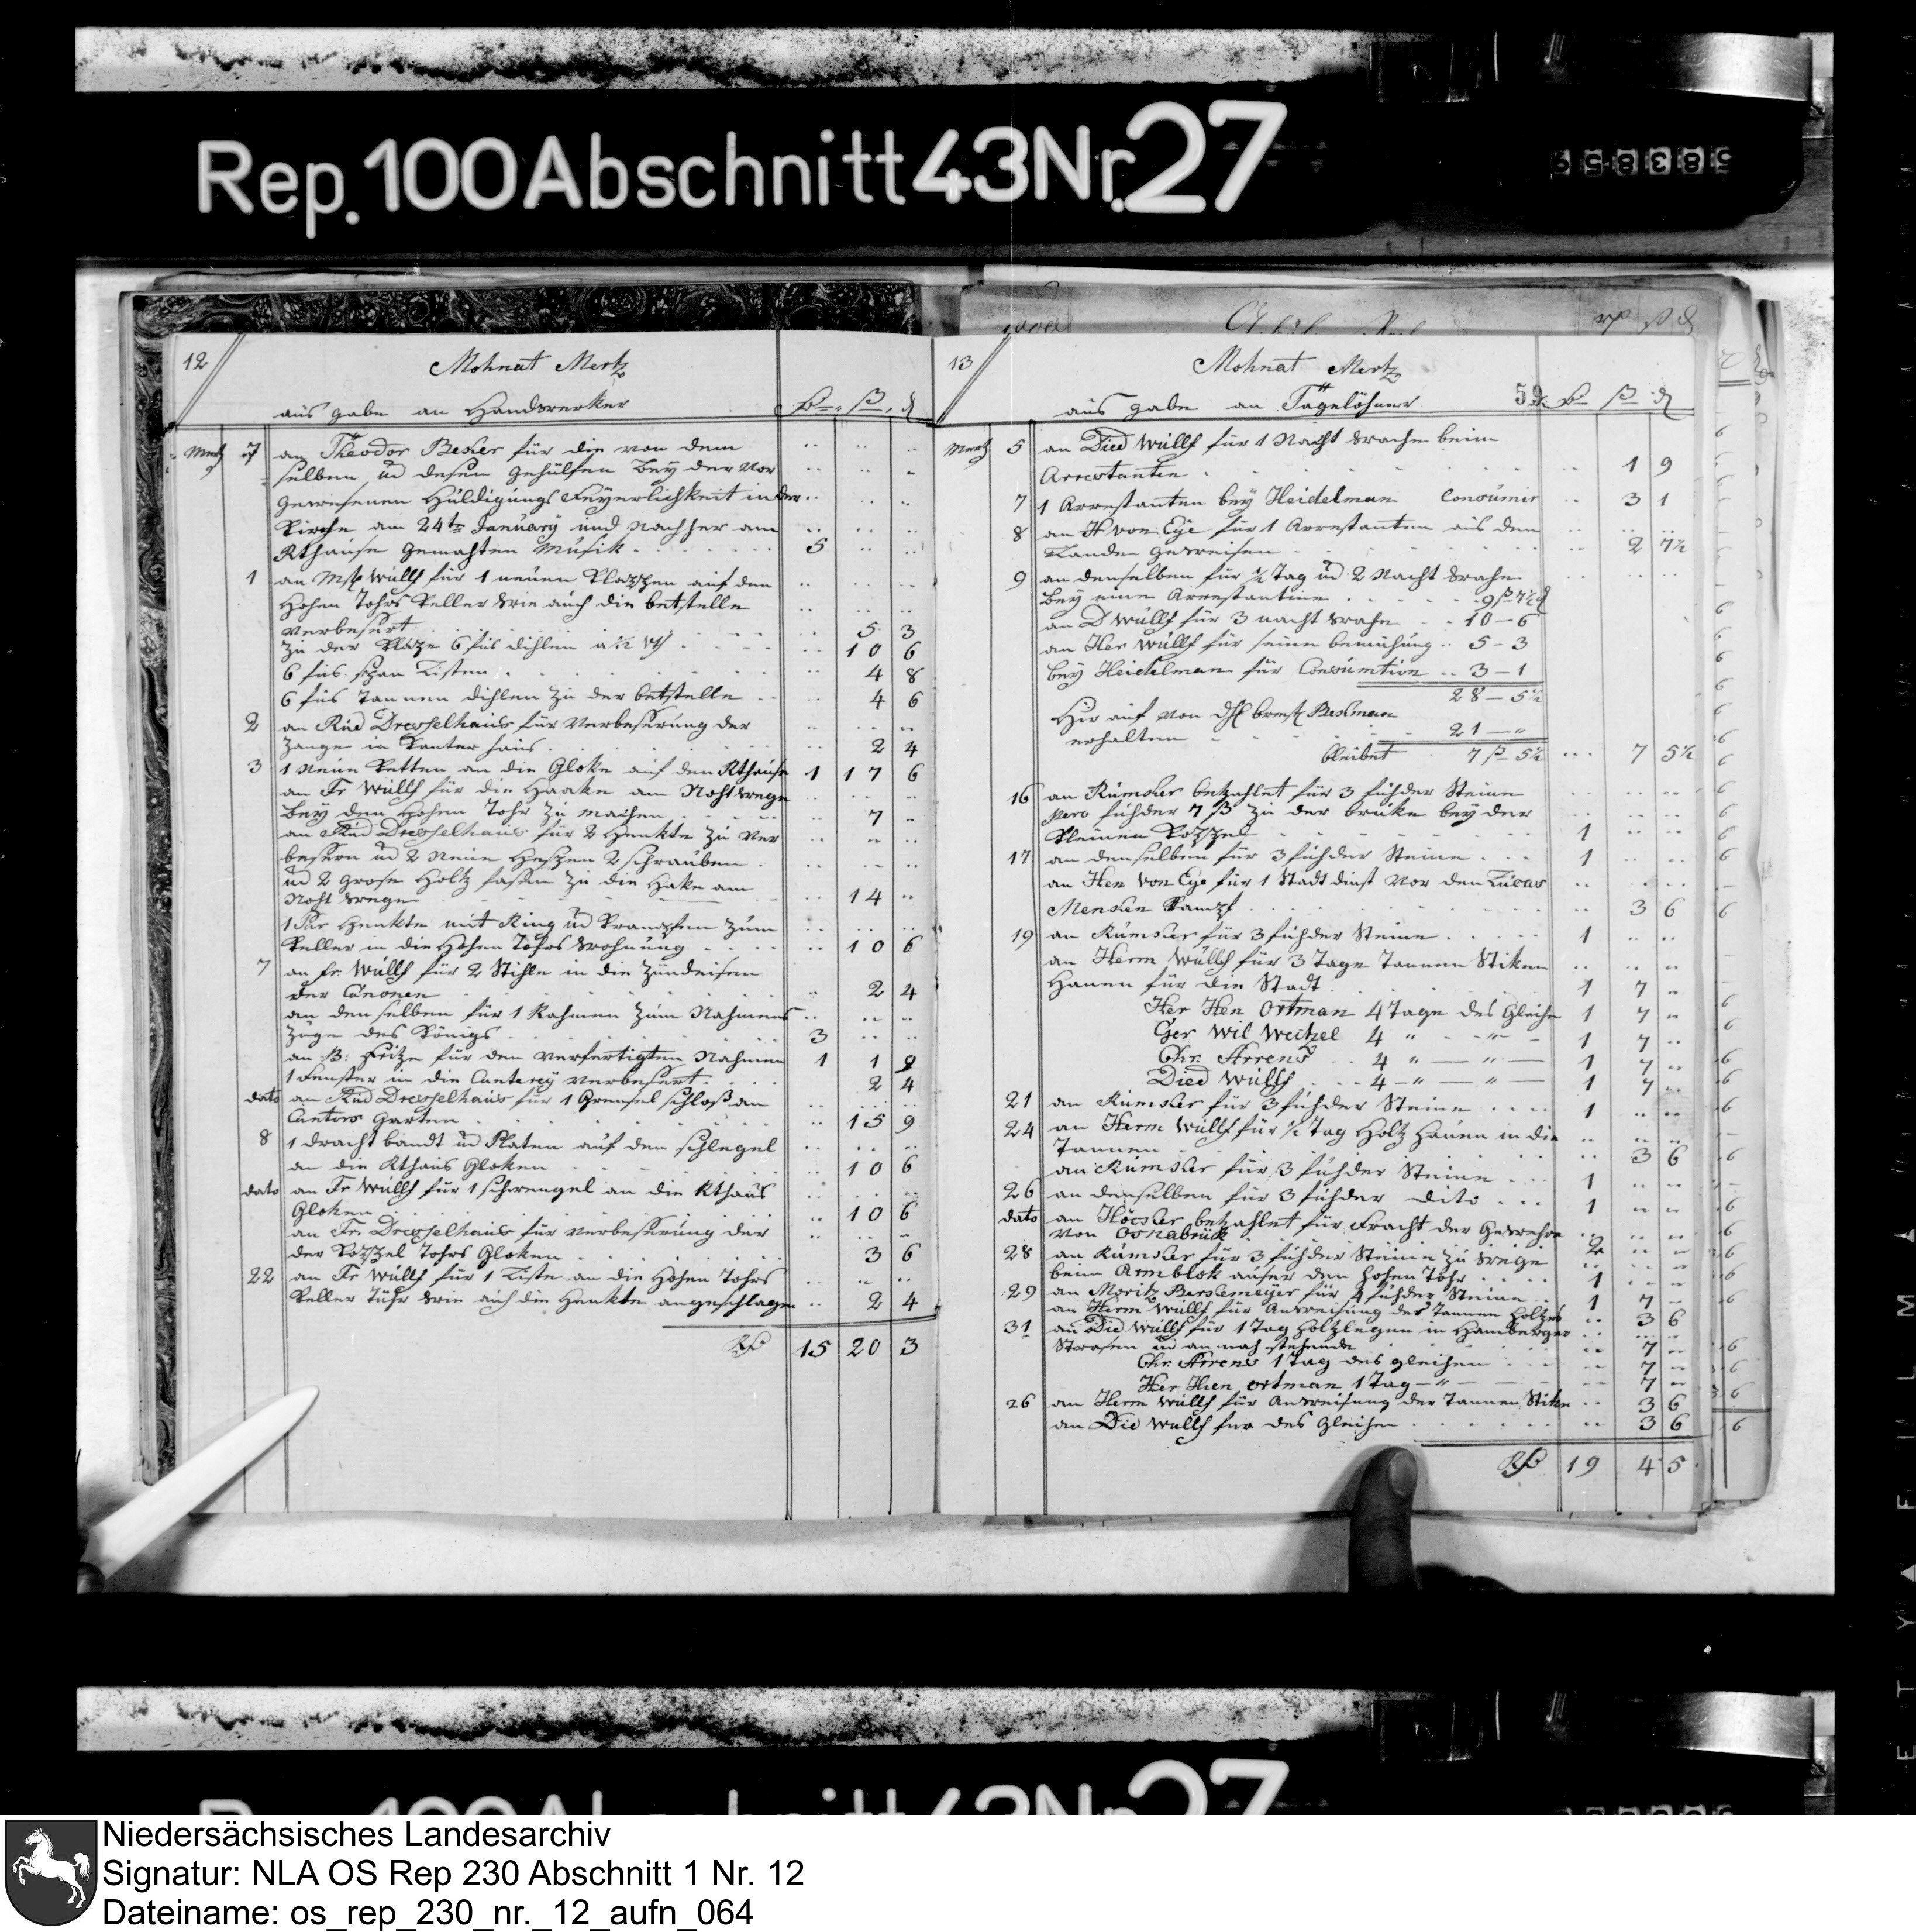 Rep. 100 Abschnitt 43 Nr. 27
12
Mohnat Mertz
aus gabe an Handwerker
Mertz 7 an Theodor Besher für die von dem
selben ud desen gehülfen bey der Vor
gewesenen Huldigungs Feyerlichkeit in der
Kirche am 24ten January und Nachher am
Rthause gemahten Musik 5
1 an Wullf für 1 neuen auf den
Hohen Tohrs Keller wie auch die betstelle
verbesert 5 3
zu der 6 fus dihlen 10 6
6 fus Listen 4 8
6 fus Tannen dihlen zu der betstelle 4 6
2 an Rud Dresselhaus für Verbeserung der
Zange in Kanter haus 2 4
3 1 Neue Ketten an die Gloke auf den Rthause 1 17 6
an Fr Wullf für die Haake am Nohtwege
bey dem Hohen Tohr zu machen 7
an Rud Dresselhaus für 2 Henkte zu Ver
besern ud 2 Neue 2 schrauben
ud 2 grose Holtz zu die Hake am
Noht wege 14
1 Par Henkte mit Ring ud zum
Keller in die Hohen Tohrs wohnung 10 6
7 an Fr. Wullf für 2 Stihle in die Zündeisen
der Canonen 2 4
an denselben für 1 Rahmen zum Nahmens
Zuge des Königs 3
an Fritze für den verfertigten Nahmen 1 1
1 Fenster in die Canterey verbesert 2 4
dato an Rud Dresselhaus für 1 schloß an
Cantors Garten 15 9
8 1 dracht bandt ud Platen auf den schlegel
an die Rthaus Gloken 10 6
dato an Fr Wullf für 1 schwengel an die Rthaus
Gloken 10 6
an Fr. Dresselhaus für verbeserung der
der Tohrs Gloken 3 6
22 an Fr Wullf für 1 Liste an die Hohen Tohrs
Keller Tühr wie auch die Henkte angeschlagen 2 4
15 20 3
13
Mohnat Mertz
aus gabe an Tagelöhner 59
Mertz 5 an Died Wullf für 1 Nacht wache beim
Arrestanten 1 9
7 1 Arrestanten bey Heidelman Consumir 3 1
8 an H von Eye für 1 Arrestanten aus dem
Lande geweisen 2 7½
9 an denselben für ½ Tag ud 2 Nacht wache
bey eine Arrestantine 9 ß 7½
an D Wullf für 3 nacht wache 10 – 6
an Her Wullf für seine bemühung 5 – 3
bey Heidelman für Consumtion 3 – 1
28 – 5½
Hir auf von Beckman
erhalten 21 – "
bleibet 7 ß 5½ 7 5½
16 an Rumsker betzahlet für 3 führder Steine
führder 7 ß zu der brüke bey der
kleinen 1
17 an denselben für 3 führder Steine 1
an Hen von Eye für 1 Stadt dinst vor den Lucas
Menshen Kampf 3 6
19 an Rumsker für 3 führder Steine 1
an Herm Wullf für 3 Tage Tannen Stiken
Hauen für die Stadt 1 7
Her Hen Ortman 4 Tage des Gleihen 1 7
Ger Wil Weitzel 4 " – " – 1 7
Chr. Arrens 4 " – " – 1 7
Died Wullf 4 – " – " – 1 7
21 an Rumsker für 3 führder Steine 1
24 an Herm Wullf für ½ Tag Holtz Hauen in die
Tannen 3 6
an Rumsker für 3 führder Steine 1
26 an denselben für 3 führder dito 1
dato an betzahlet für Fracht der Gewehre
von Osnabrük 2
28 an Rumsker für 3 führder Steine zu wege
beim Armblok auser den Hohen Tohr 1
29 an Moritz für 4 führder Steine 1 7
an Herm Wullf für Anweisung des Tannen Holtzes 3 6
31 an Die Wullf für 1 Tag Holtzlegen in Hamberger
Strasen ud an nach stehende 7
Chr. Arrens 1 Tag des gleihen 7
Her Hen Ortman 1 Tag – " – 7
26 an Herm Wullf für Anweisung der Tannen Stiken 3 6
an Die Wullf für des gleihen 3 6
19 4 5
Niedersächsisches Landesarchiv
Signatur: NLA OS Rep 230 Abschnitt 1 Nr. 12
Dateiname: os_rep_230_nr._12_aufn_064